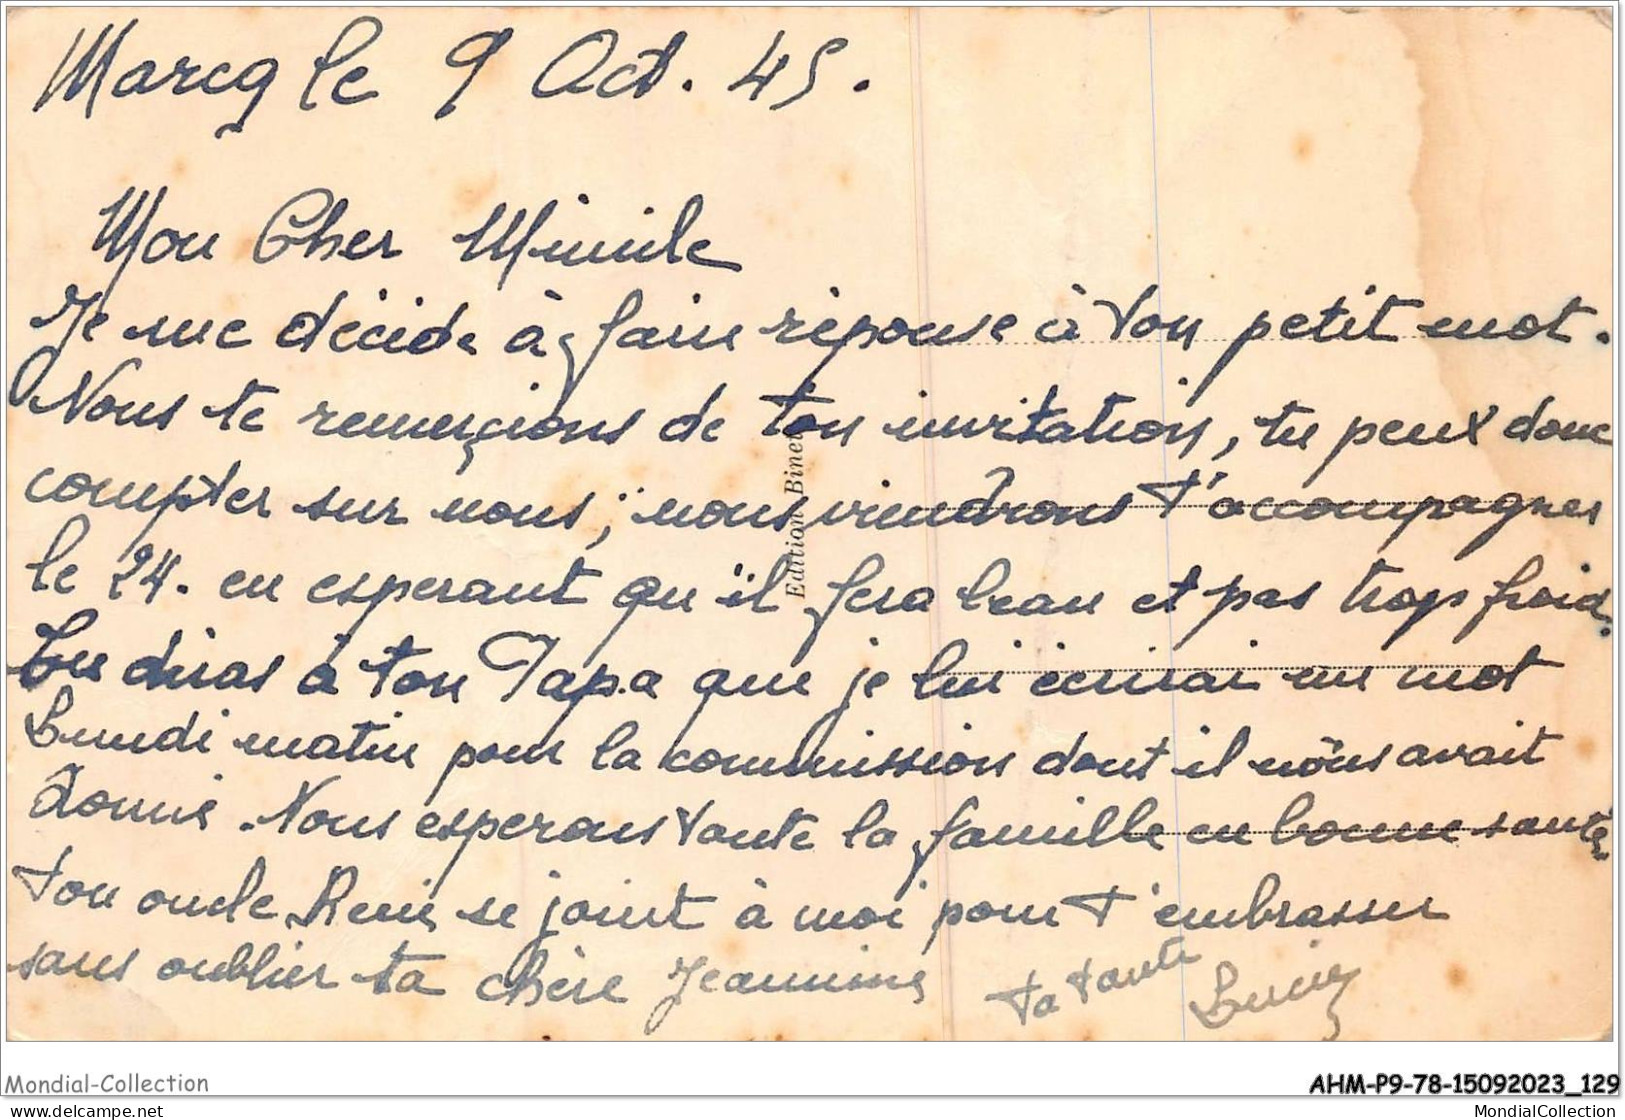 Marcq le 9 Oct. 45.
Mon Cher Mimile
Je me décide à faire réponse à ton petit mot.
Nous te remerçions de ton invitation, tu peux donc
compter sur nous, nous viendrons t'accompagner
le 24. en esperant qu'il fera beau et pas trop froid.
Tu diras à ton Papa que je lui écrirai un mot
Lundi matin pour la commission dont il nous avait
donné. Nous esperons toute la famille en bonne santé
ton oncle René se joint à moi pour t'embrasser
sans oublier ta chère Jeannine
ta tante Lucie
Edition Binet
Mondial-Collection
AHM-P9-78-15092023_129
www.delcampe.net
MondialCollection